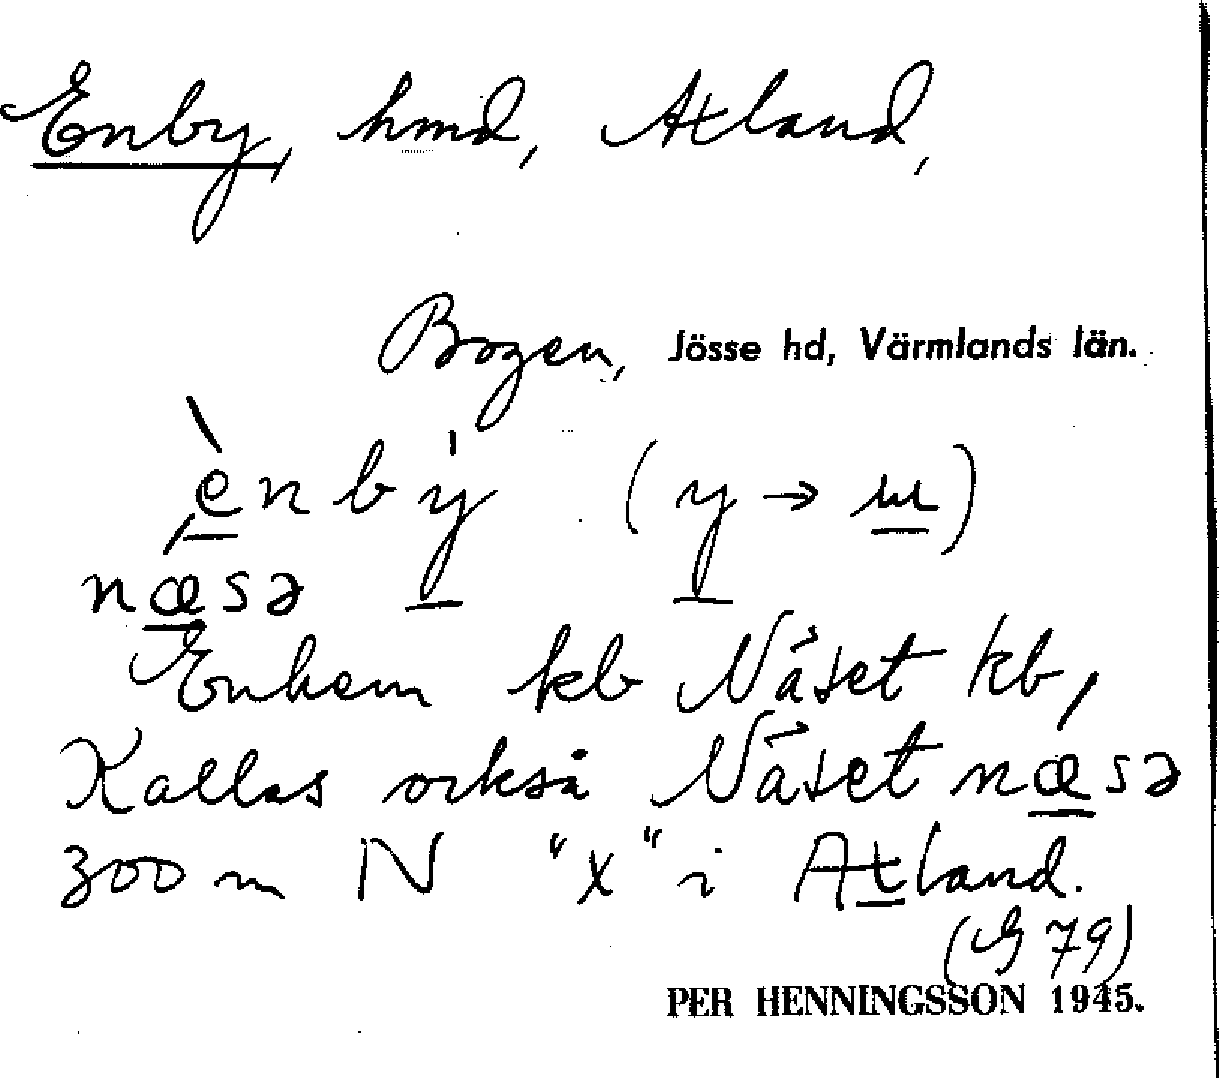 Enby, hmd, Axland,
Bogen, Jösse hd, Värmlands län.
ènbý (y → ɯ)
næsə
Enhem kb Näset kb,
Kallas också Näset næsə
300 m N "x" i Axland.
(G 79)
PER HENNINGSSON 1945.